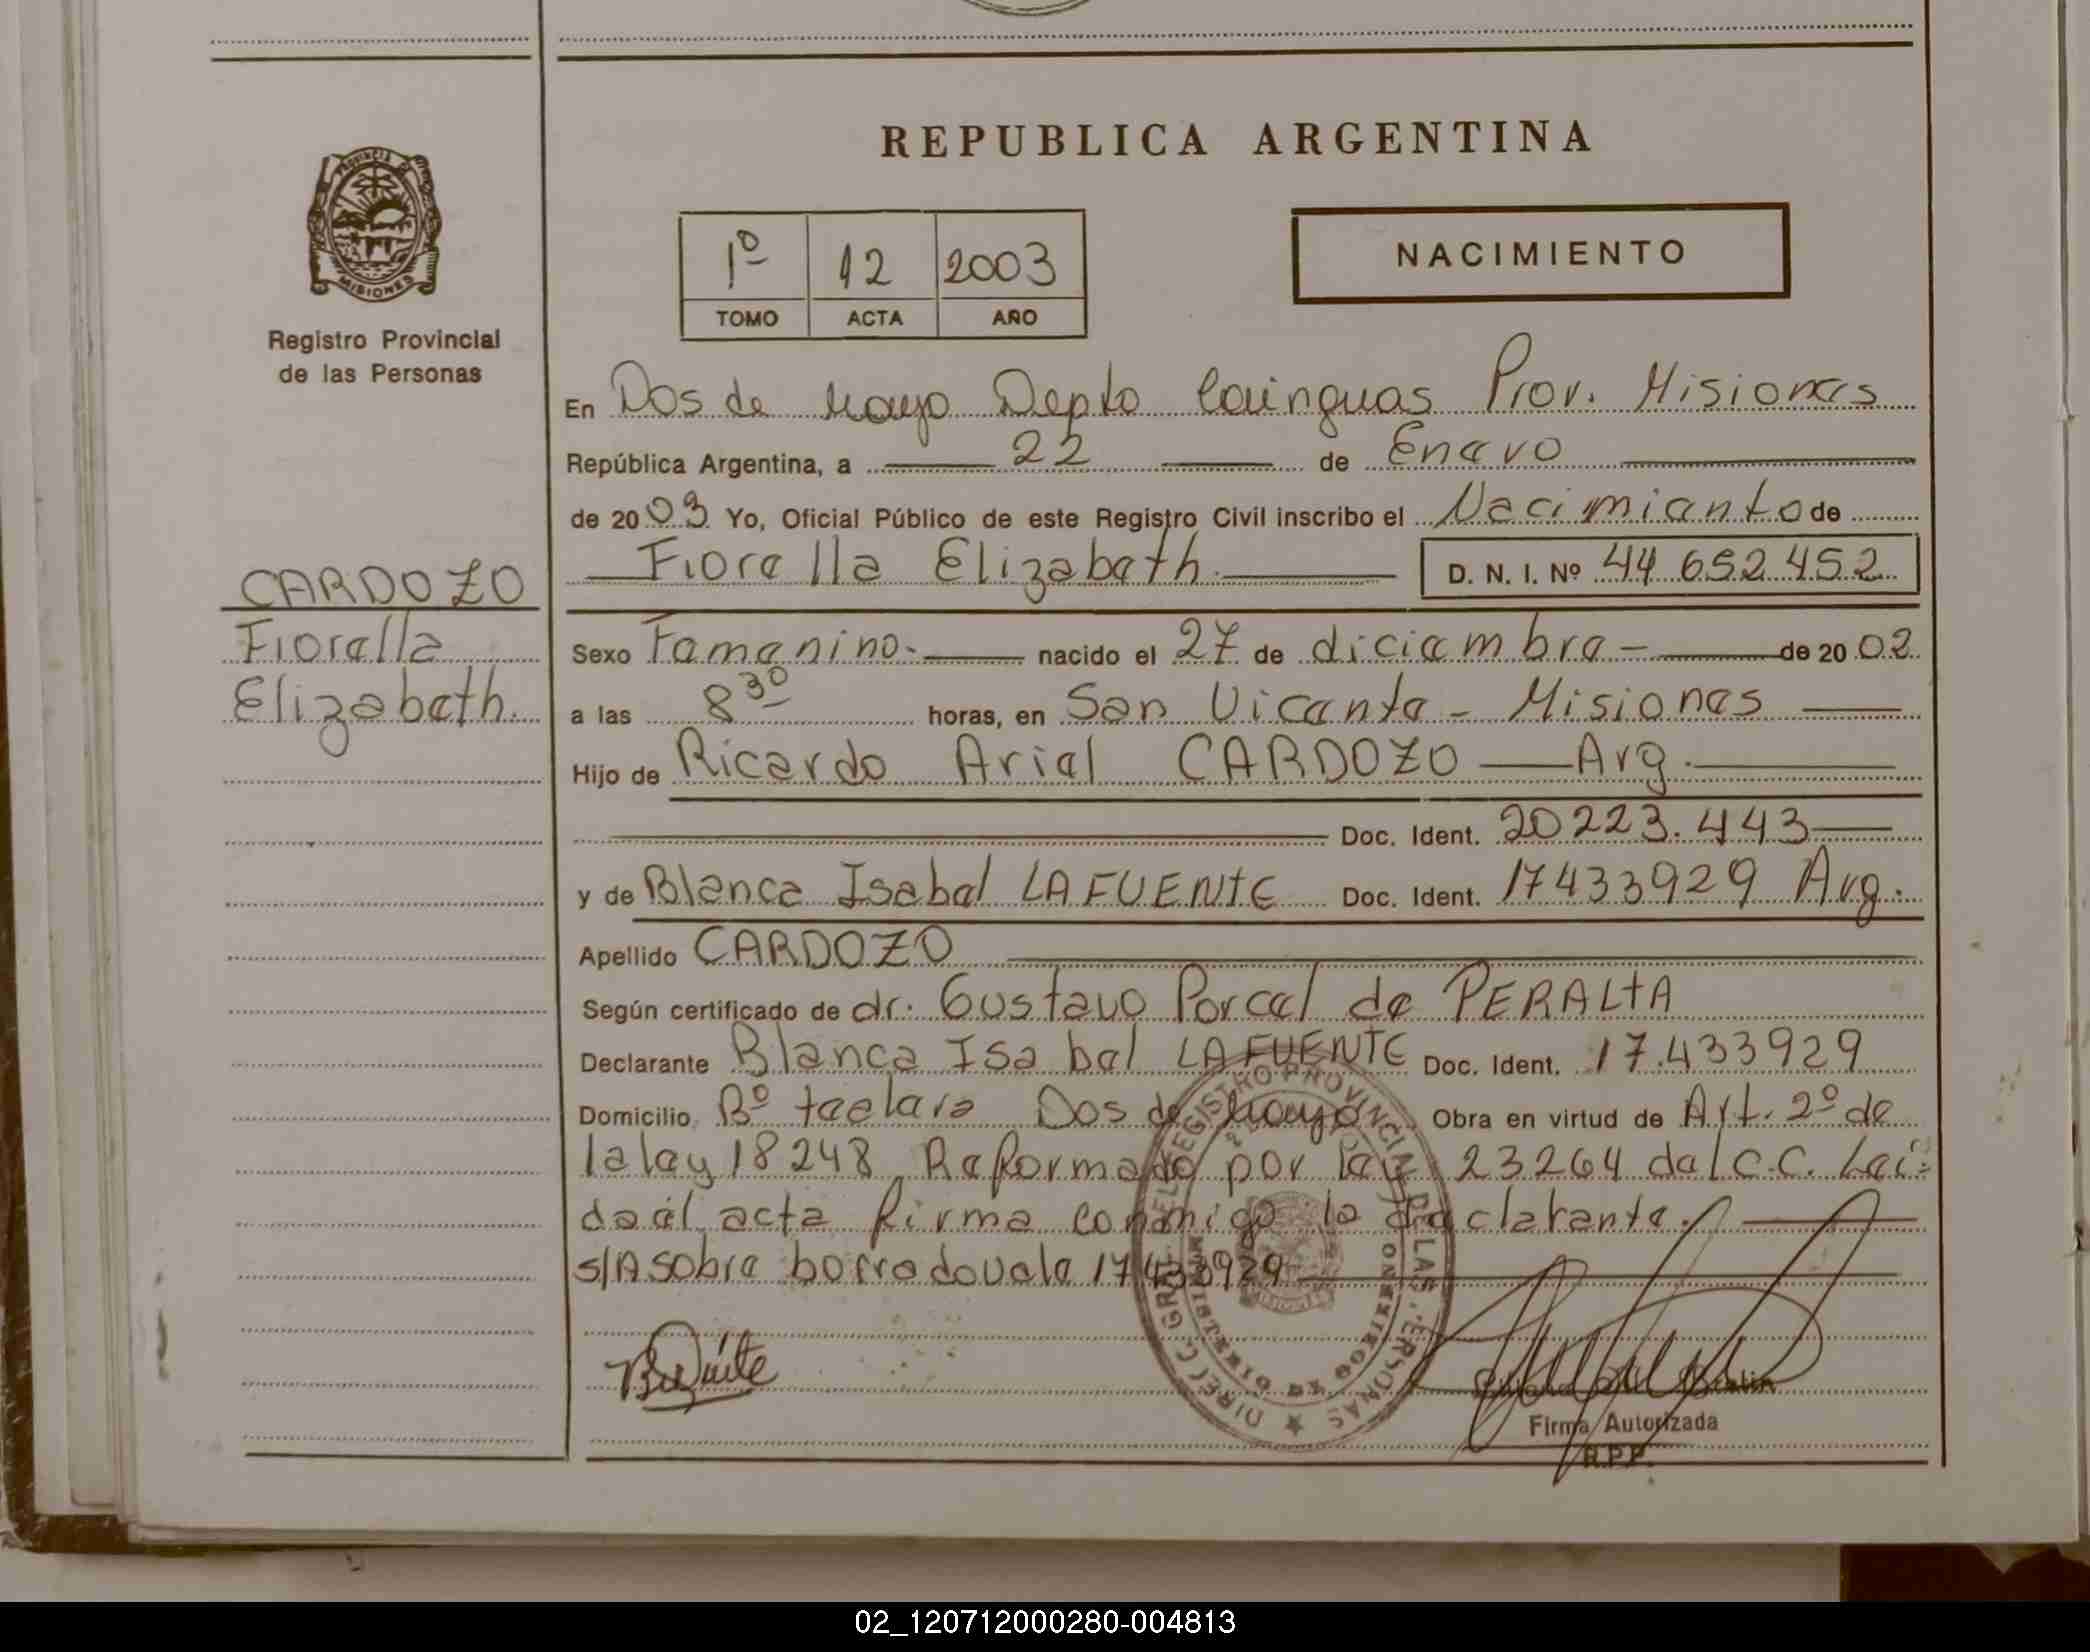 REPUBLICA ARGENTINA
PROVINCIA DE
MISIONES
Registro Provincial
de las Personas
1º 12 2003
TOMO ACTA AÑO
NACIMIENTO
En Dos de Mayo Depto Cainguas Prov. Misiones
República Argentina, a 22 de Enero
de 2003 Yo, Oficial Público de este Registro Civil inscribo el Nacimiento de
Fiorella Elizabeth D. N. I. Nº 44 652 452
CARDOZO
Fiorella
Elizabeth
Sexo Femenino. nacido el 27 de diciembre - de 2002
a las 8 30 horas, en San Vicente - Misiones
Hijo de Ricardo Ariel CARDOZO Arg.
Doc. Ident. 20223.443
y de Blanca Isabel LAFUENTE Doc. Ident. 17433929 Arg.
Apellido CARDOZO
Según certificado de dr. Gustavo Porcel de PERALTA
Declarante Blanca Isabel LAFUENTE Doc. Ident. 17.433929
Domicilio Bº Dos de Mayo Obra en virtud de Art. 2º de
la ley 18248 Reformado por ley 23264 del C.C. Leí=
da el acta firma conmigo la declarante.
s/A sobre borrado vale 17433929
DIREC. GRAL. DEL REGISTRO PROVINCIAL DE LAS PERSONAS
MINISTERIO DE GOBIERNO
Firma Autorizada
R.P.P.
02_120712000280-004813